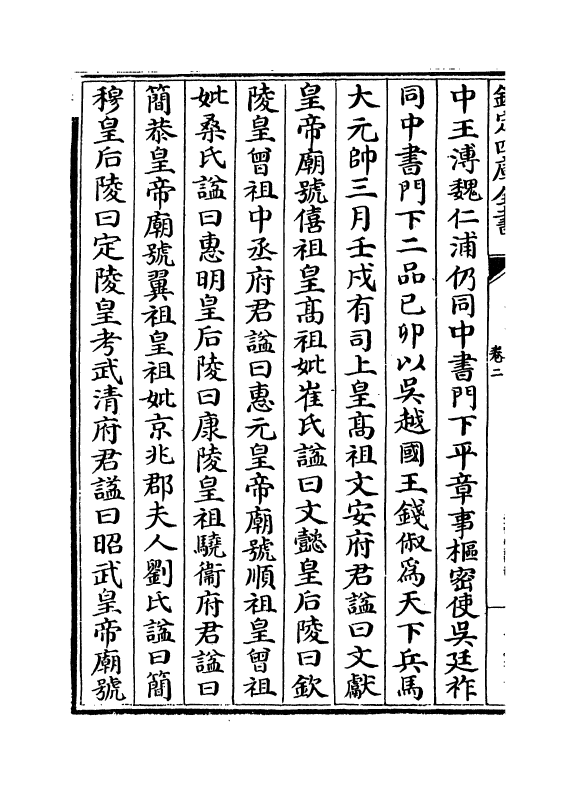 欽定四庫全書
卷二
中王溥魏仁浦仍同中書門下平章事樞密使吳廷祚
同中書門下二品已卯以吳越國王錢俶為天下兵馬
大元帥三月壬戌有司上皇髙祖文安府君諡曰文獻
皇帝廟號僖祖皇髙祖妣崔氏諡曰文懿皇后陵曰欽
陵皇曾祖中丞府君諡曰惠元皇帝廟號順祖皇曾祖
妣桑氏諡曰惠明皇后陵曰康陵皇祖驍衞府君諡曰
簡恭皇帝廟號翼祖皇祖妣京兆郡夫人劉氏諡曰簡
穆皇后陵曰定陵皇考武清府君諡曰昭武皇帝廟號